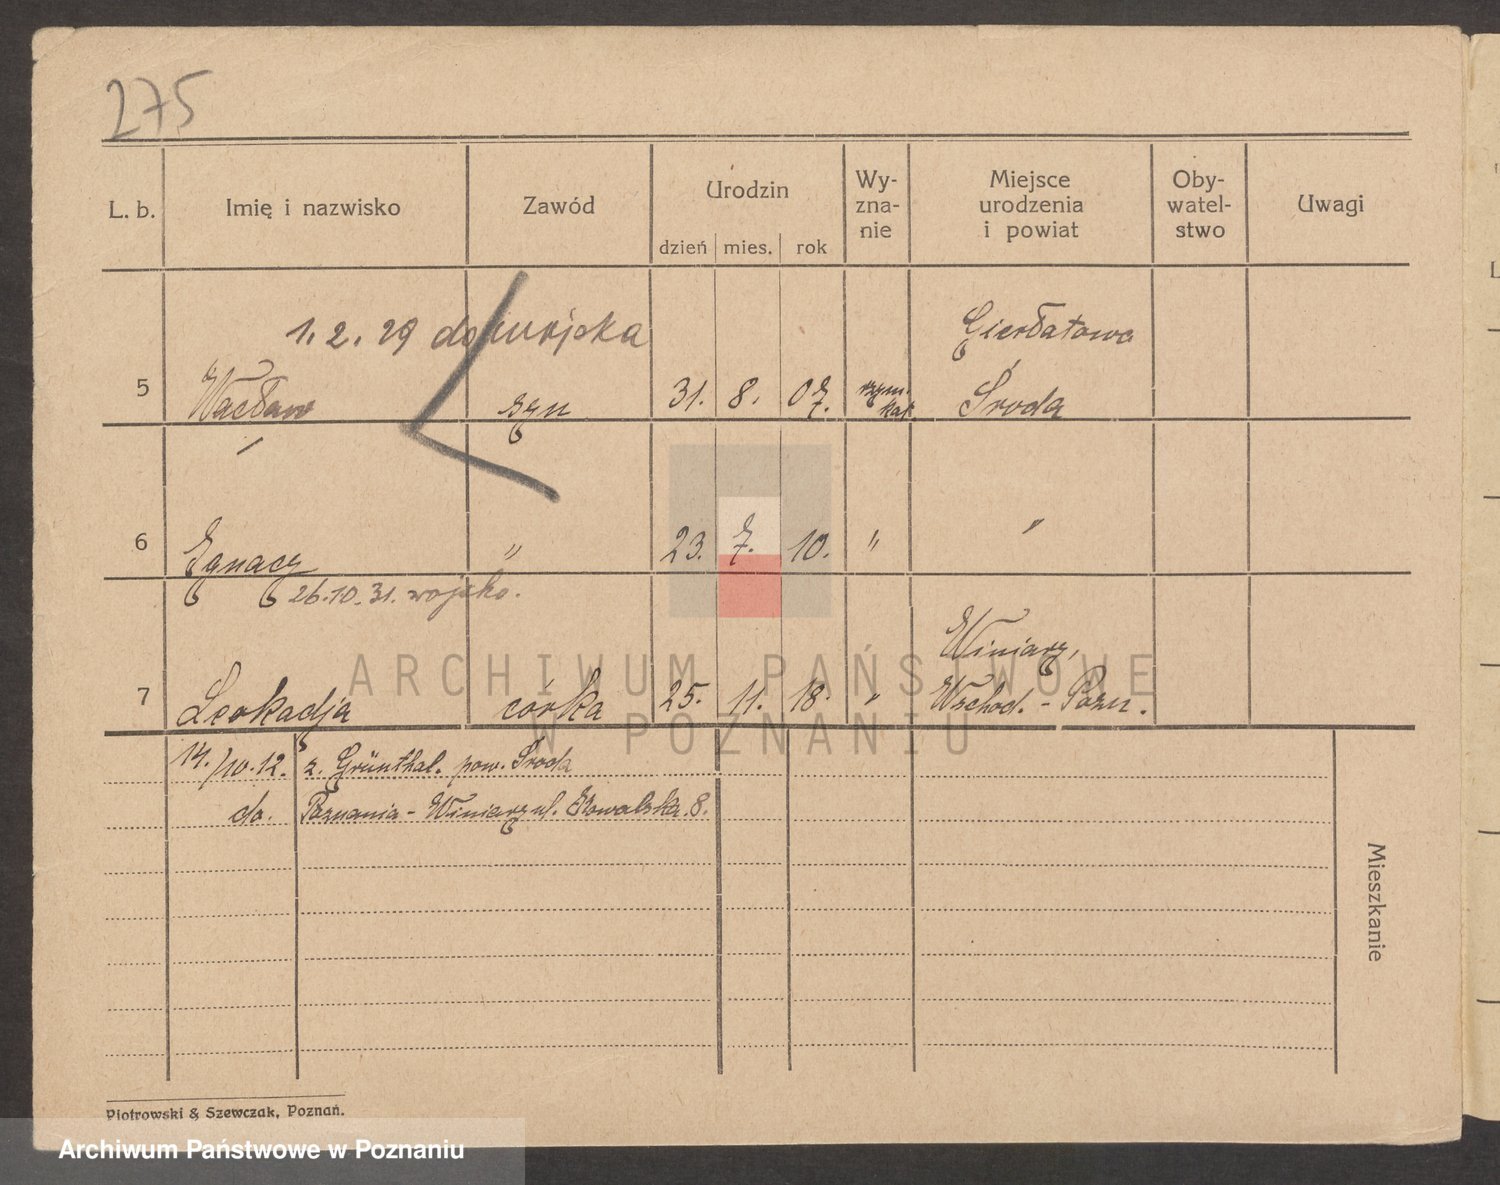 275
L. b. Imię i nazwisko Zawód Urodzin dzień mies. rok Wy-zna-nie Miejsce urodzenia i powiat Oby-watel-stwo Uwagi
1. 2. 29 do wojska Gierłatowo
5 Wacław syn 31. 8. 07. rzym. kat. Środa
6 Ignacy " 23. 7. 10. " "
26.10.31. wojsko.
Winiary,
7 Leokadja córka 25. 11. 18. " Wschod. - Pozn.
ARCHIWUM PAŃSTWOWE
W POZNANIU
14./10.12. z. Grünthal. pow. Środa
do. Poznania - Winiary ul. Kowalska. 8.
Mieszkanie
Piotrowski & Szewczak, Poznań.
Archiwum Państwowe w Poznaniu